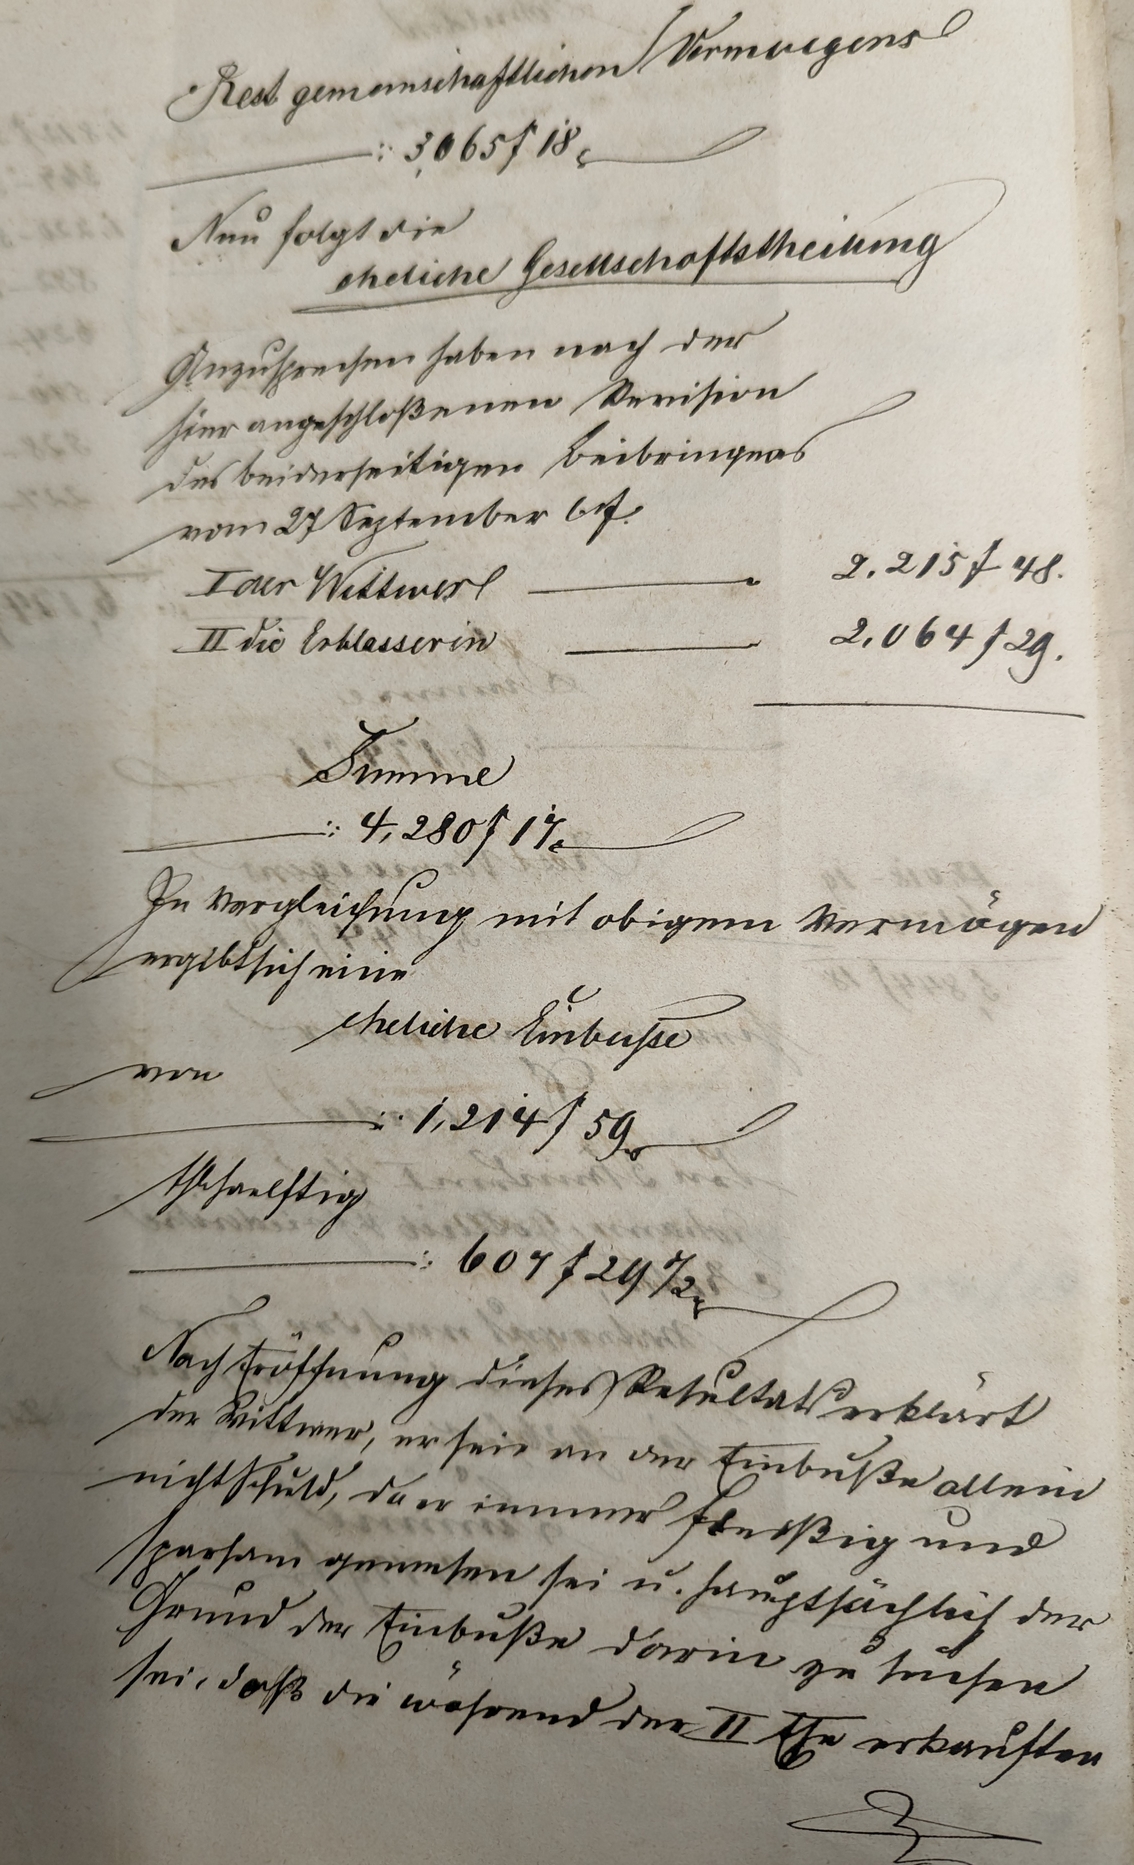 Rest gemeinschaftlichen Vermoegens
3,065 f 18
Nun folgt die
eheliche Gesellschaftstheilung
Anzusprechen haben nach der
hier angeschloßenen Revision
des beiderseitigen Beibringens
vom 27 September
I der Wittwer 2.215 f 48.
II die Erblasserin 2.064 f 29.
Summe
4,280 f 17
In Vergleichung mit obigem Vermögen
ergibt sich eine
eheliche Einbusse
von
1,214 f 59
haelftig
607 f 29 1/2
Nach Eröffnung dieses Resultats erklärt
der Wittwer, er seie an der Einbuße allein
nicht schuld, da er immer fleißig und
sparsam gewesen sei u. hauptsächlich der
Grund der Einbuße darin zu suchen
sei, daß die während der II Ehe erkauften